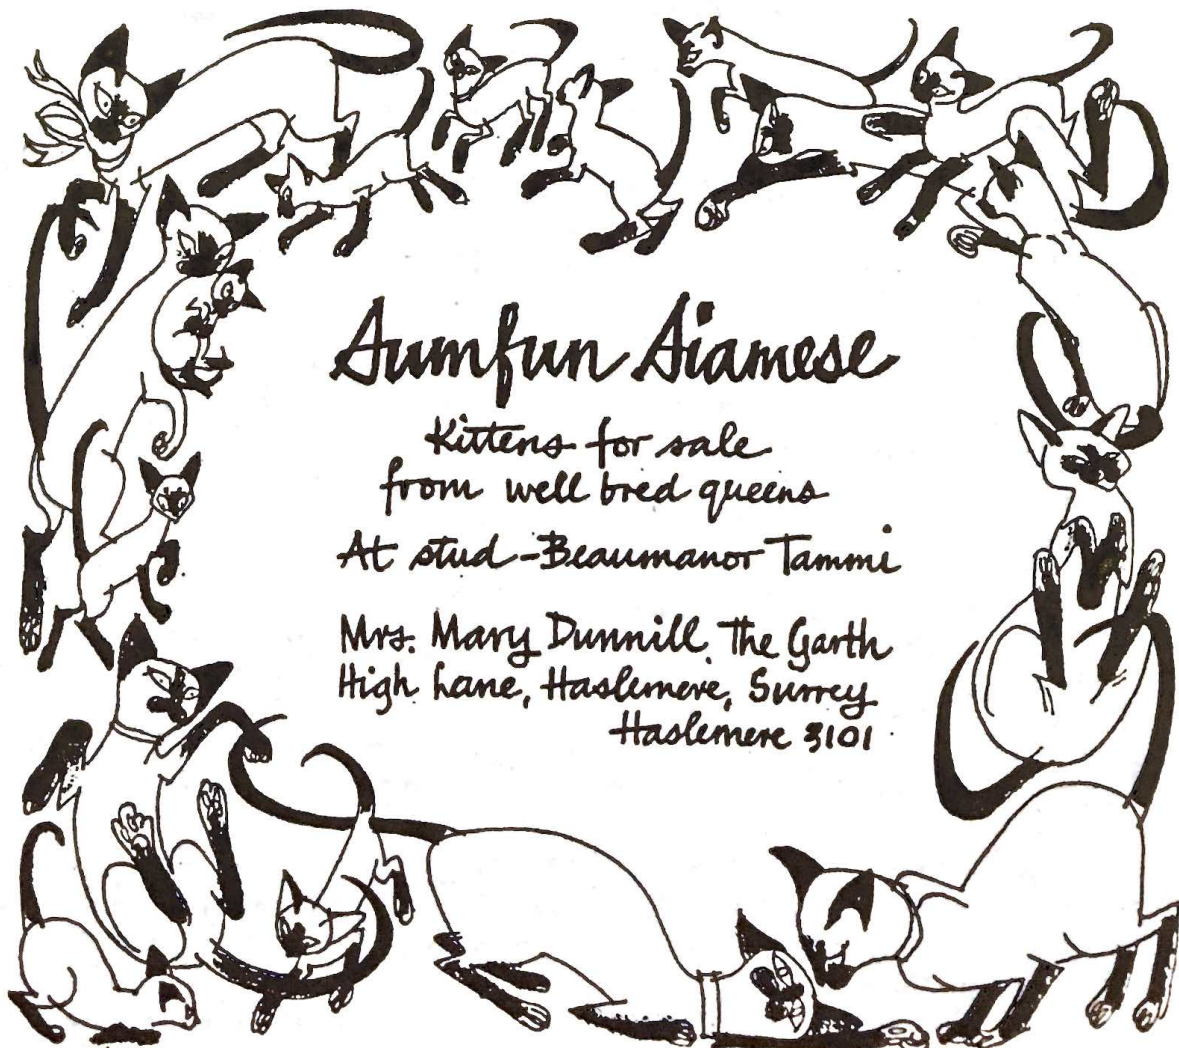 Sumfun Siamese
Kittens for sale
from well bred queens
At stud - Beaumanor Tammi
Mrs. Mary Dunnill, The Garth
High Lane, Haslemere, Surrey
Haslemere 3101